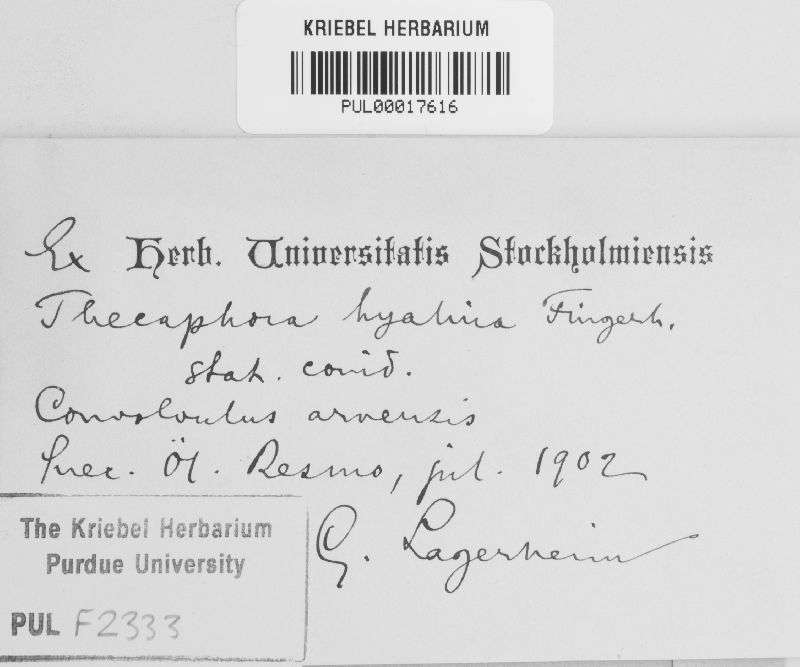 KRIEBEL HERBARIUM
PUL00017616
Ex Herb. Universitatis Stockholmiensis
Thecaphora hyalina Fingerh.
stat. conid.
Convolvulus arvensis
Suec. Öl. Resmo, jul. 1902
G. Lagerheim
The Kriebel Herbarium
Purdue University
PUL F2333